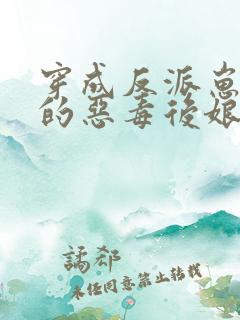 穿成反派崽
的惡毒後娘
譎郄
未經同意禁止轉載